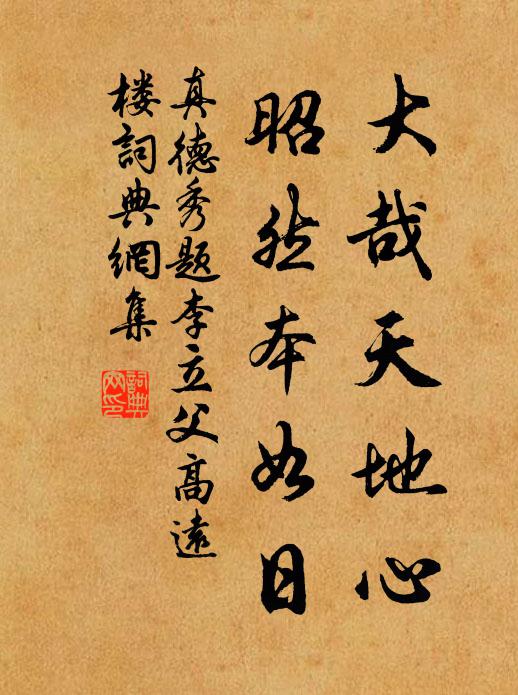 大哉天地心
昭然本如日
真德秀题李立父高遠
楼詞典網集
詞典
网印